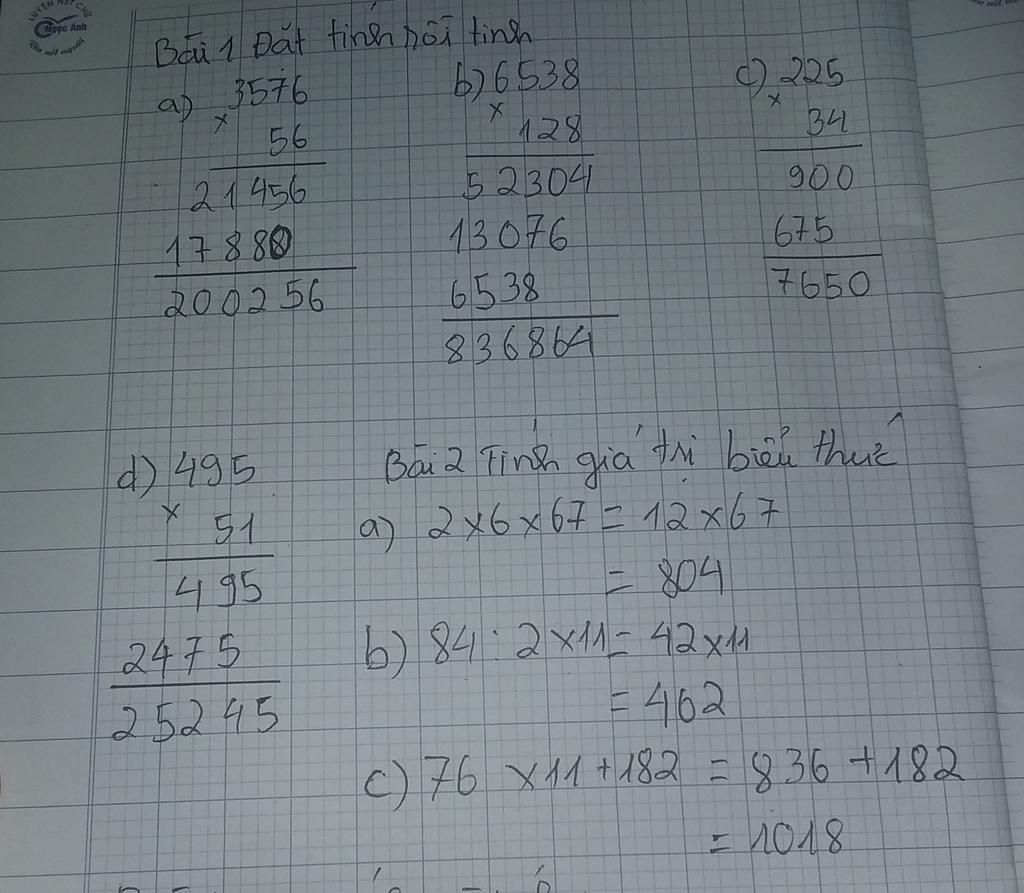 LUYỆN NÉT CHỮ
Ngọc Anh
Rèn nết người
Bài 1 Đặt tính rồi tính
a) 3576
×
56
21456
17880
200256
b) 6538
×
128
52304
13076
6538
836864
c) 225
×
34
900
675
7650
d) 495
×
51
495
2475
25245
Bài 2 Tính giá trị biểu thức
a) 2×6×67 = 12×67
= 804
b) 84 : 2×11 = 42×11
= 462
c) 76 ×11+182 = 836 +182
= 1018